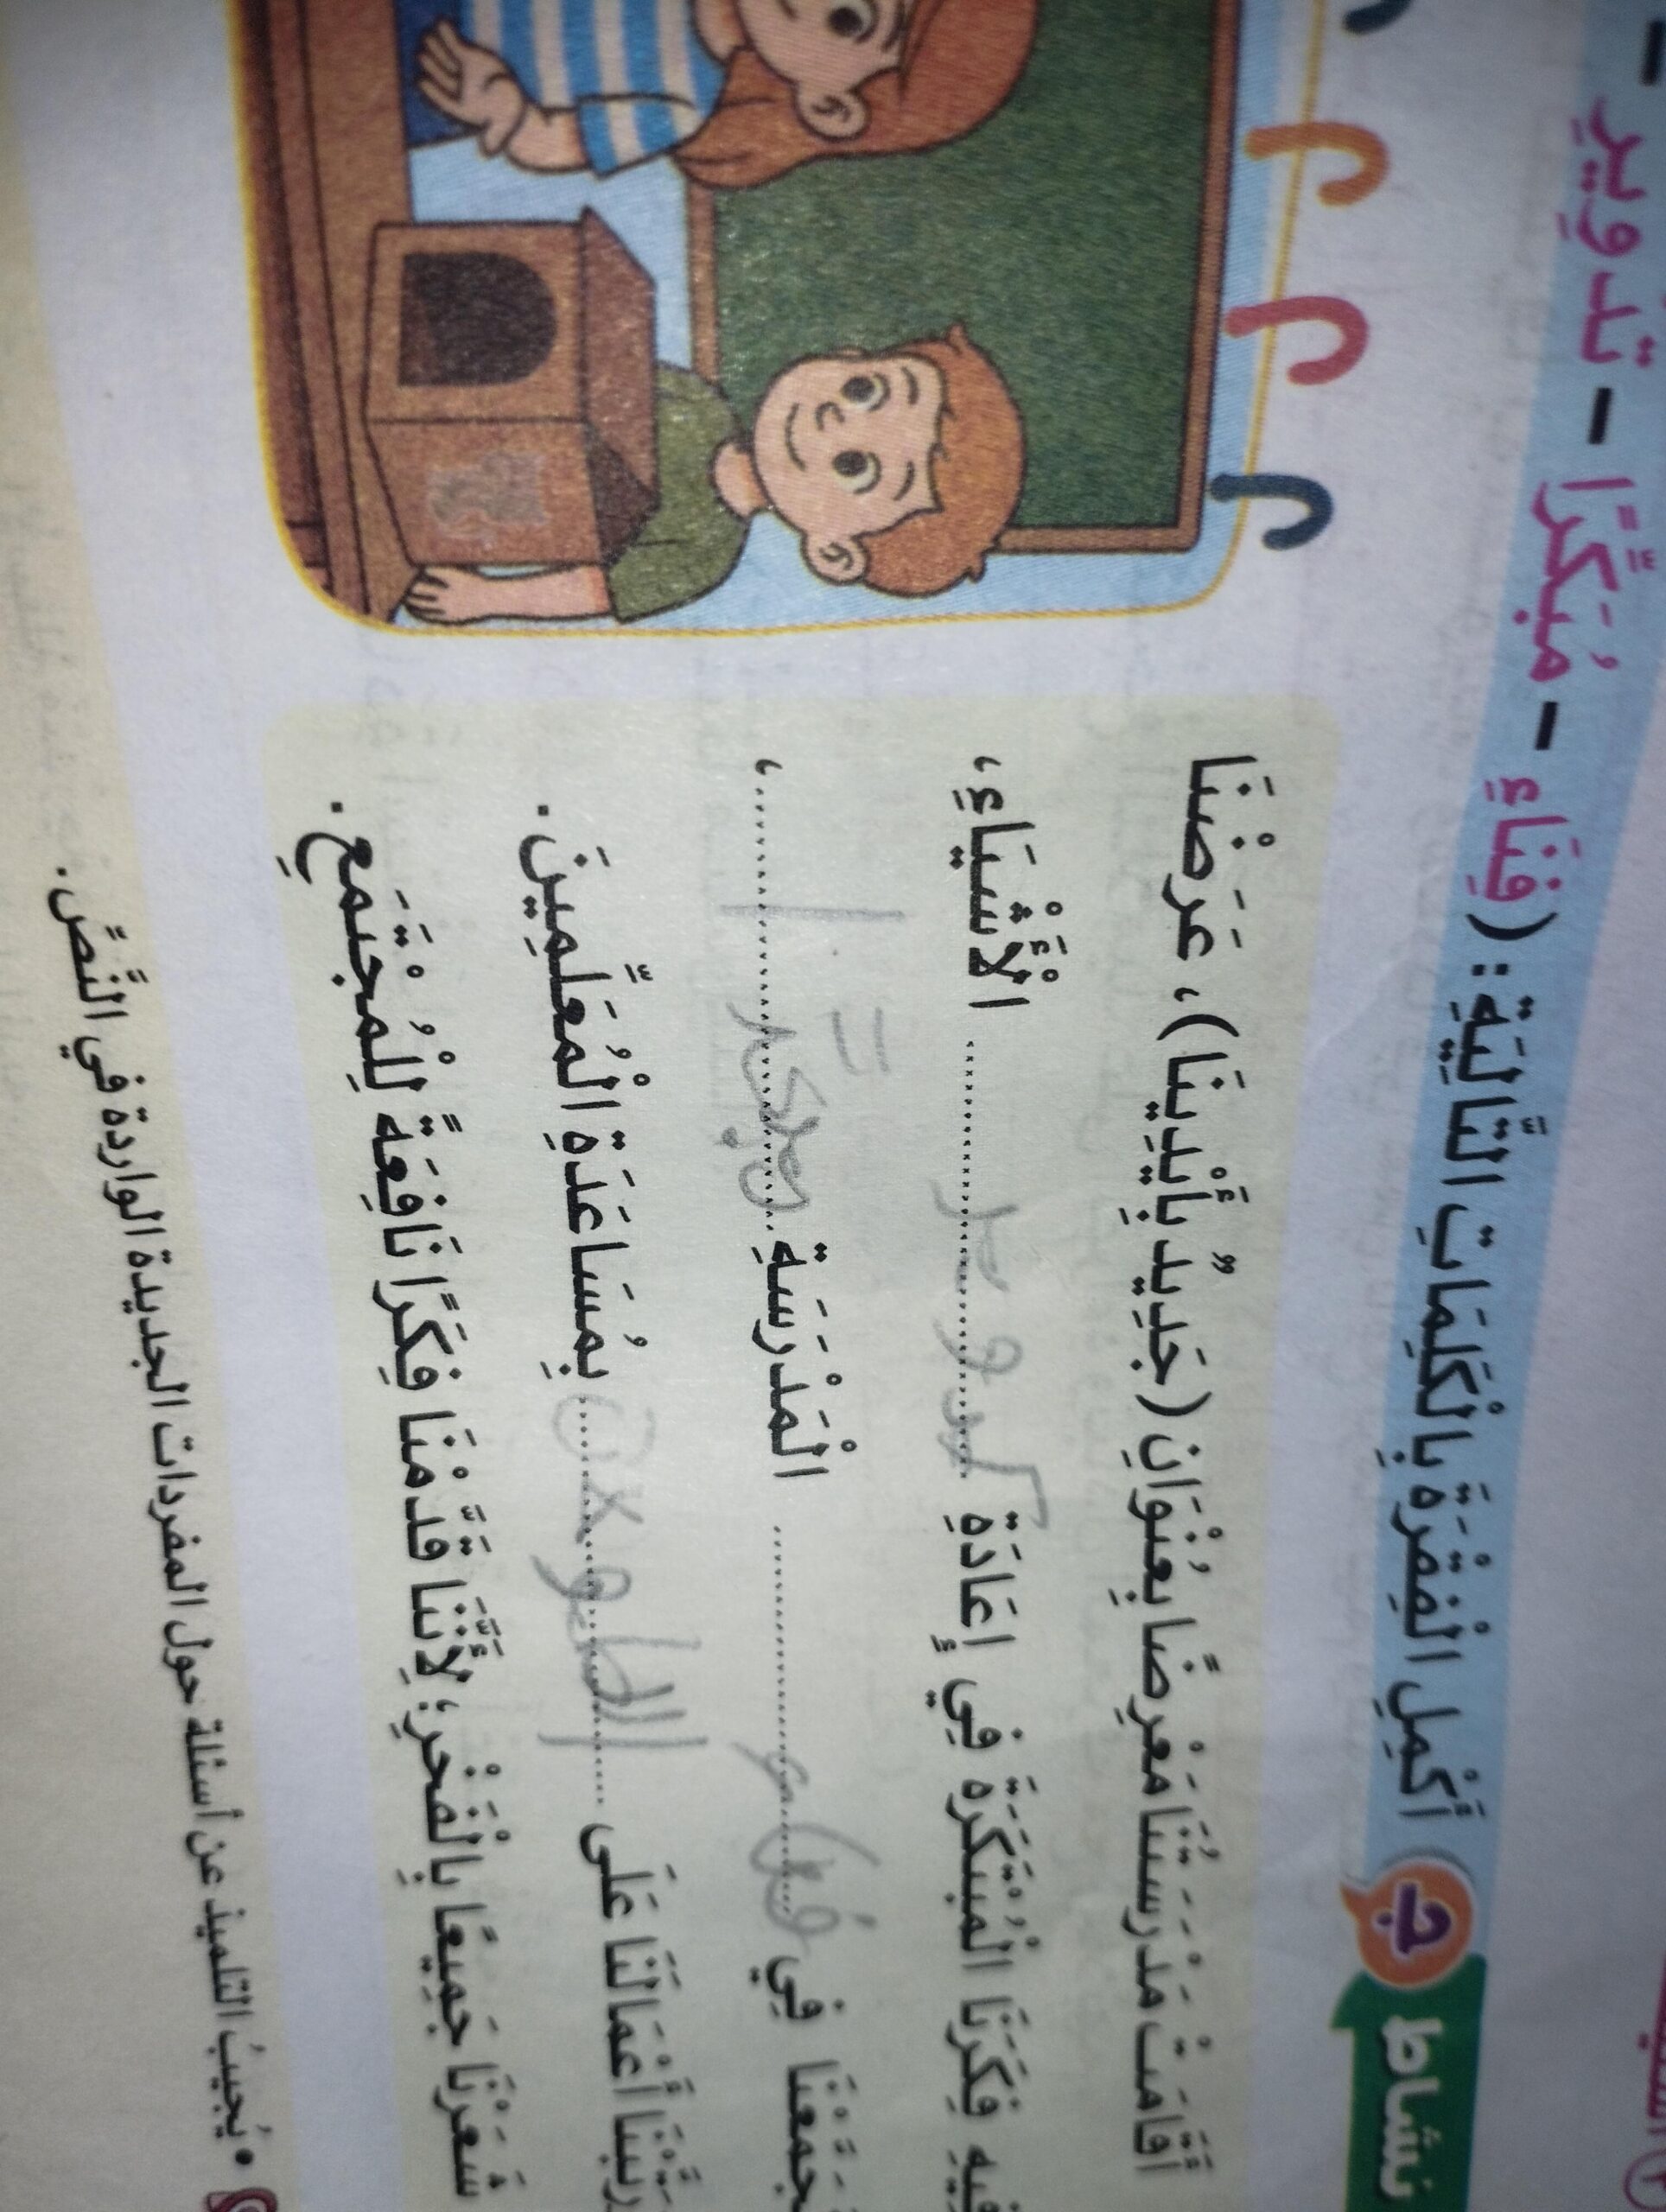 نشاط ج أَكْمِلِ الْفِقْرَةَ بِالْكَلِمَاتِ التَّالِيَةِ: (فِنَاءِ - مُبَكِّرًا - تَدْوِيرِ -
أَقَامَتْ مَدْرَسَتُنَا مَعْرِضًا بِعُنْوَانِ (جَدِيدٌ بِأَيْدِينَا)، عَرَضْنَا
فِيهِ فِكَرَنَا الْمُبْتَكَرَةَ فِي إِعَادَةِ ........ الْأَشْيَاءِ،
فِي فناء ........ الْمَدْرَسَةِ ........ ،
أَعْمَالَنَا عَلَى ........ بِمُسَاعَدَةِ الْمُعَلِّمِينَ.
شَعَرْنَا جَمِيعًا بِالْفَخْرِ؛ لِأَنَّنَا قَدَّمْنَا فِكَرًا نَافِعَةً لِلْمُجْتَمَعِ.
• يُجيبُ التلميذ عن أسئلة حول المفردات الجديدة الواردة في النَّصِّ.